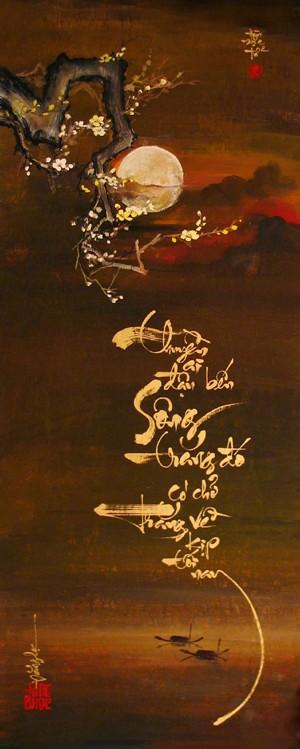 Thuyền
ai
đậu bến
Sông
trăng đó
có chở
trăng về
kịp
tối nay